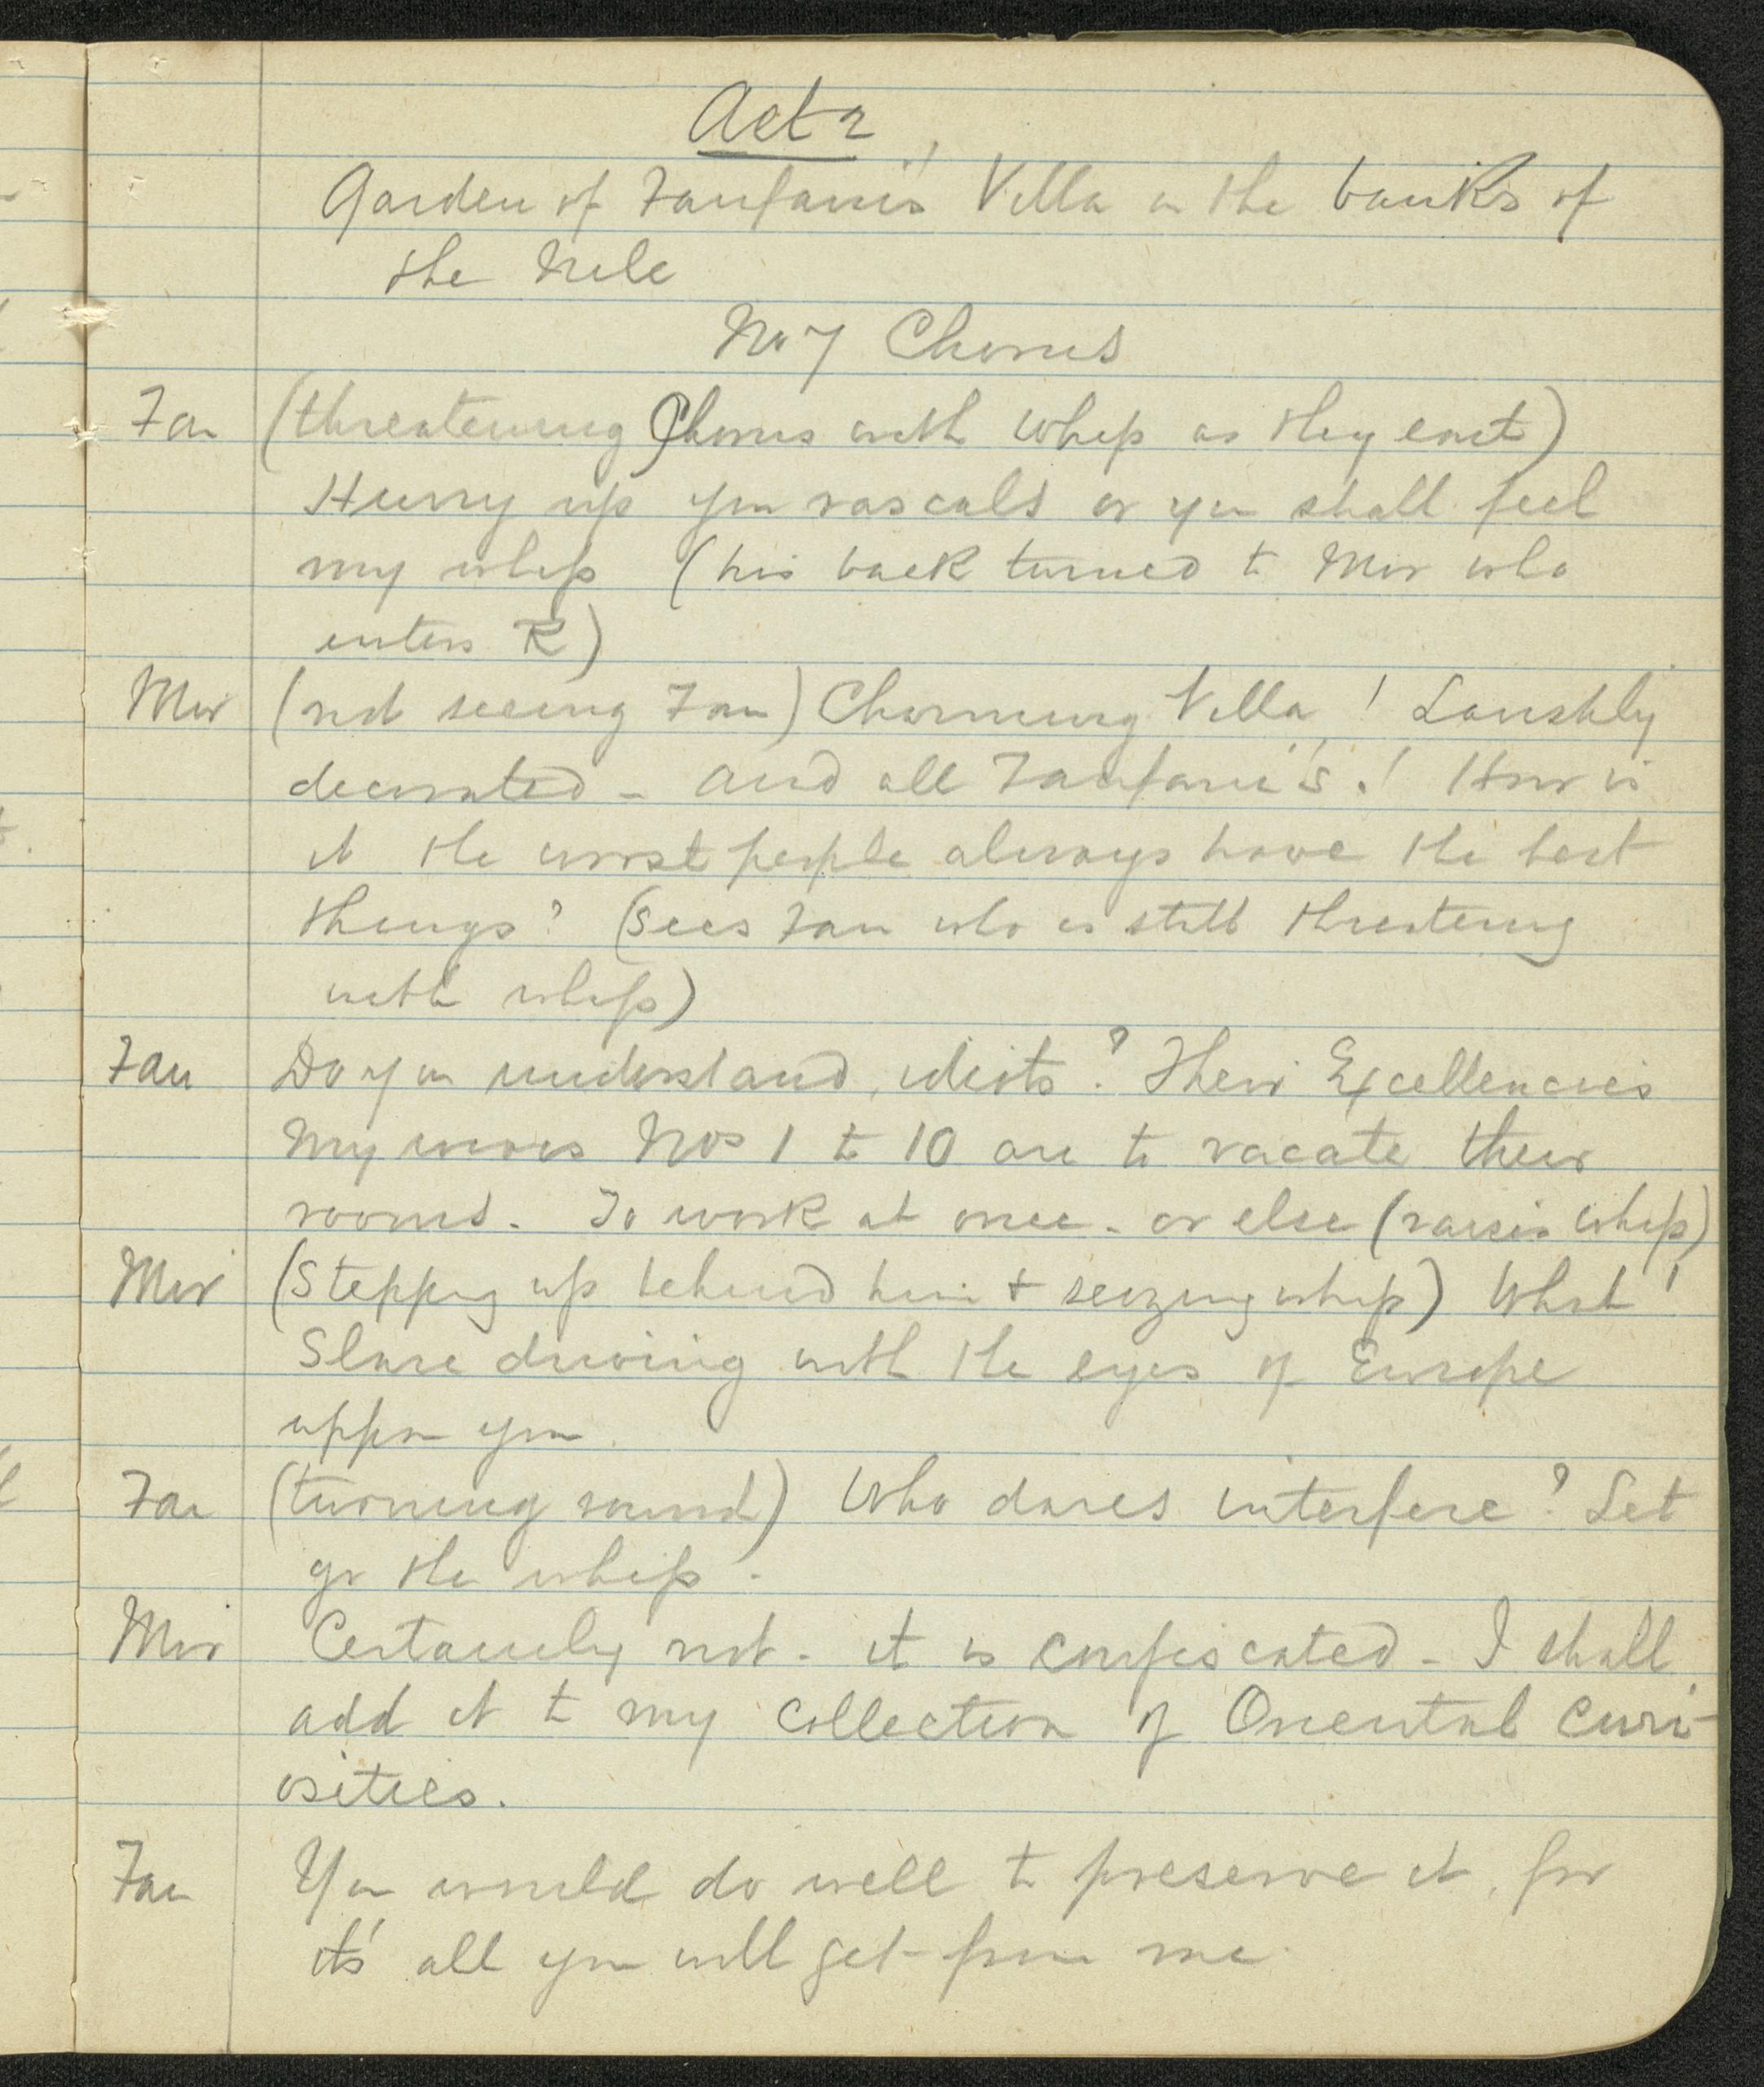 Act 2
Garden of Fanfani's Villa on the banks of
the Nile
No 7 Chorus
Fan (threatening Chorus with whip as they exit)
Hurry up you rascals or you shall feel
my whip (his back turned to Mir who
enters R)
Mir (not seeing Fan) Charming Villa! Lavishly
decorated - and all Fanfani's! How is
it the worst people always have the best
things? (Sees Fan who is still threatening
with whip)
Fan Do you understand, idiots? Their Excellencies
My wives Nos 1 to 10 are to vacate their
rooms. To work at once - or else (raises whip)
Mir (Stepping up behind him + seizing whip) What!
Slave driving with the eyes of Europe
uppon you.
Fan (turning round) Who dares interfere? Let
go the whip.
Mir Certainly not - it is confiscated - I shall
add it to my collection of Oriental Curi-
osities.
Fan You would do well to preserve it, for
it's all you will get from me.